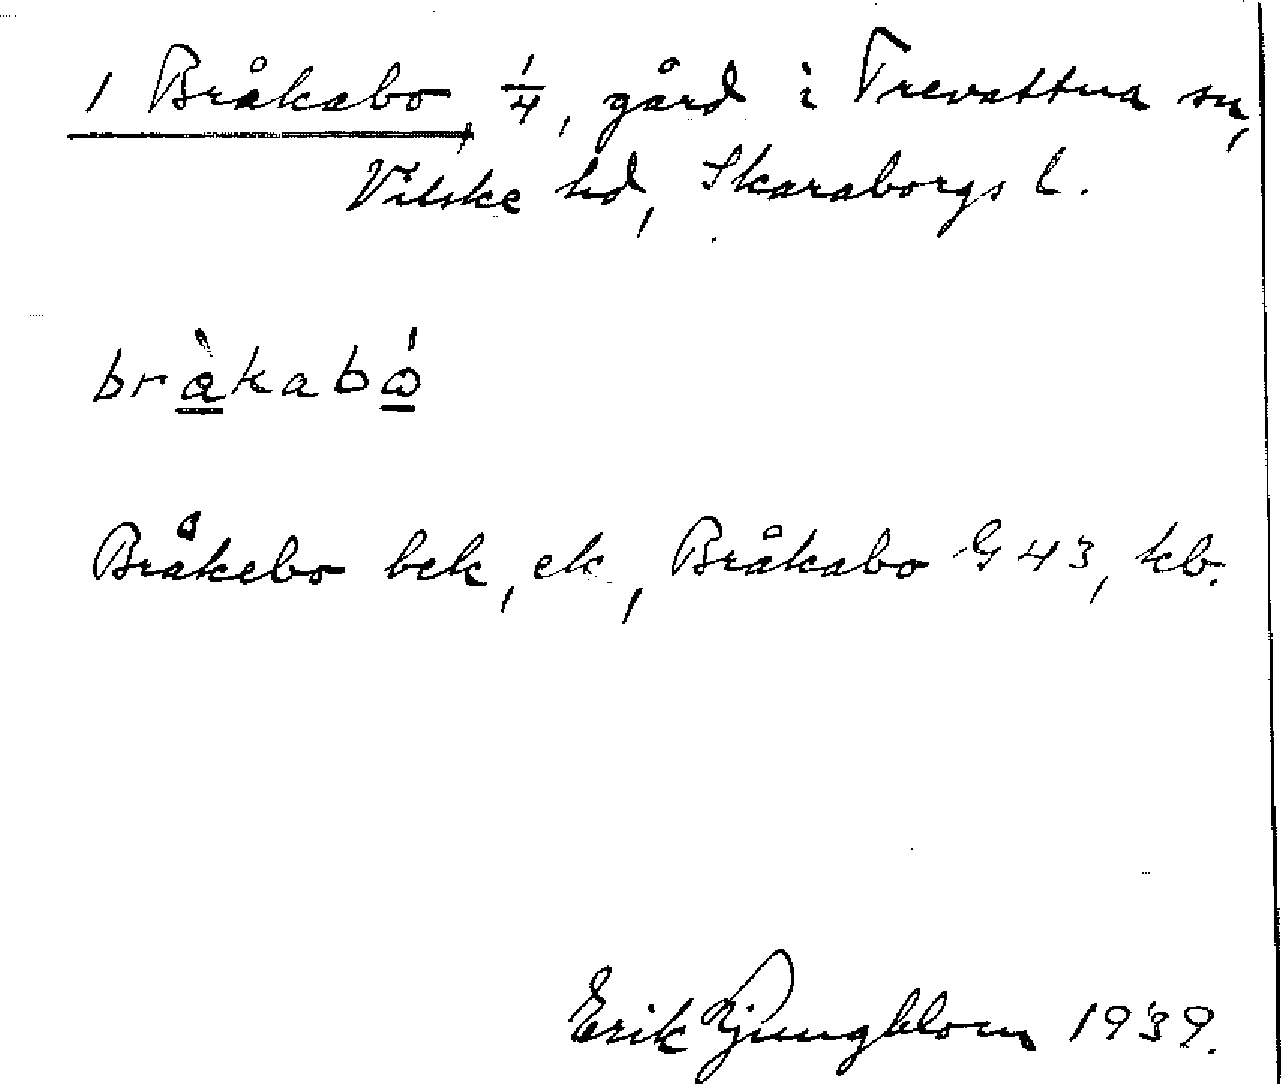 1 Bråkabo, 1/4, gård i Trevattna sn,
Vilske hd, Skaraborgs l.
bràkabó
Bråkebo bek, ek, Bråkabo G 43, kb.
Erik Ljungblom 1939.